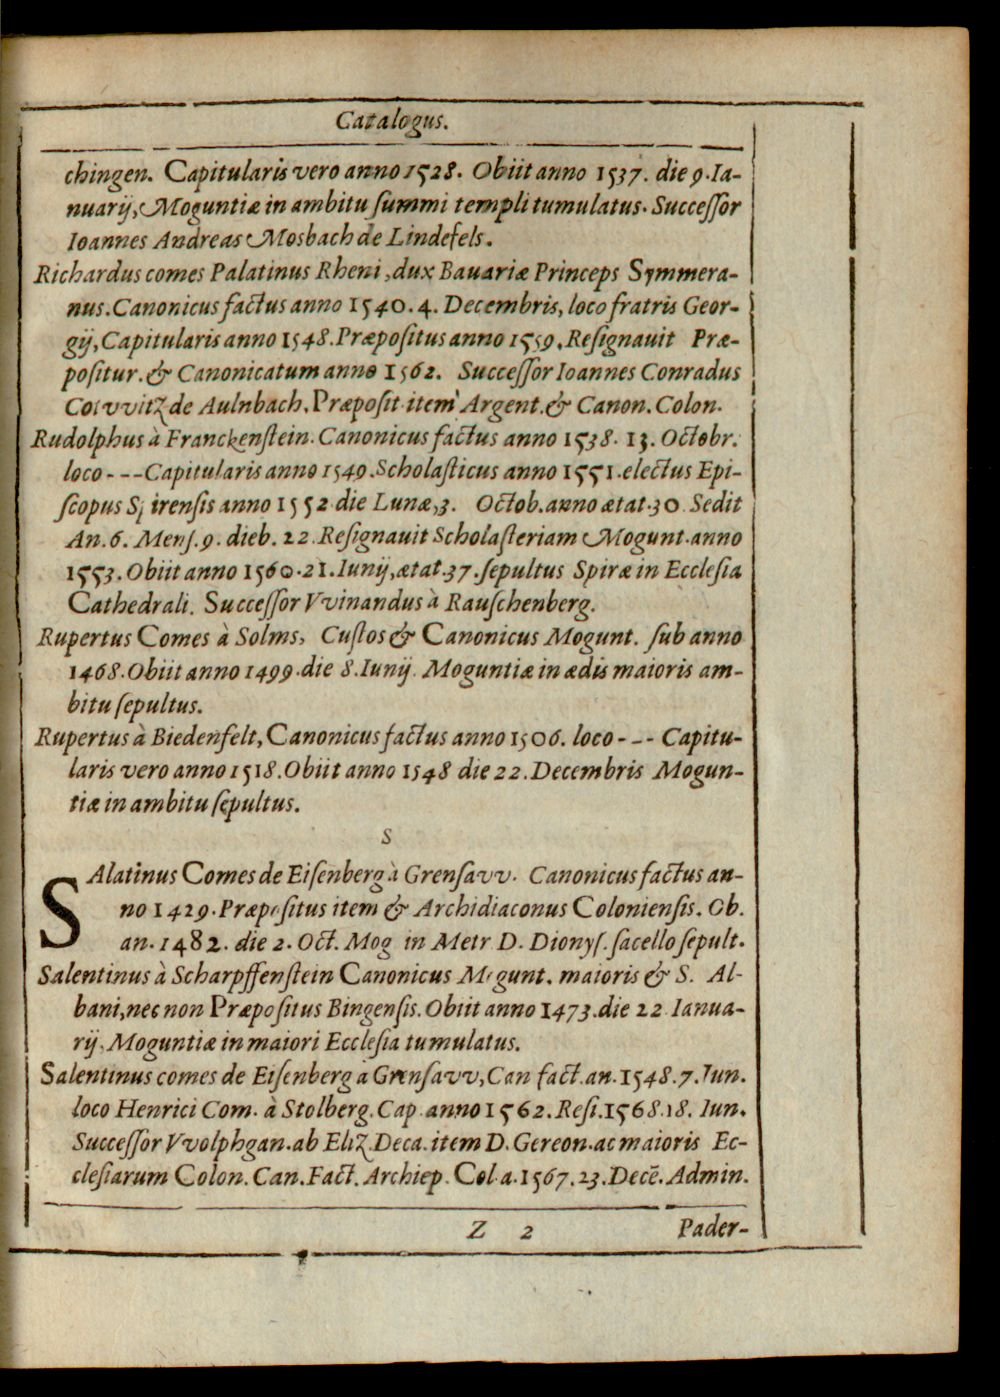 Catalogus.
chingen. Capitularis vero anno 1528. Obiit anno 1537. die 9. Ia-
nuarij, Moguntiæ in ambitu ſummi templi tumulatus. Succeſſor
Ioannes Andreas Mosbach de Lindefels.
Richardus comes Palatinus Rheni, dux Bauariæ Princeps Symmera-
nus. Canonicus factus anno 1540. 4. Decembris, loco fratris Geor-
gij, Capitularis anno 1548. Præpoſitus anno 1559. Reſignauit Præ-
poſitur. & Canonicatum anno 1562. Succeſſor Ioannes Conradus
de Aulnbach. Præpoſit item Argent. & Canon. Colon.
Rudolphus à Franckenſtein. Canonicus factus anno 1538. 13. Octobr.
loco - - - Capitularis anno 1549. Scholaſticus anno 1551. electus Epi-
ſcopus Spirenſis anno 1552 die Lunæ, 3. Octob. anno ætat. 30 Sedit
An. 6. Menſ. 9. dieb. 22. Reſignauit Scholaſteriam Mogunt. anno
1553. Obiit anno 1560. 21. Iunij, ætat. 37. ſepultus Spiræ in Eccleſia
Cathedrali. Succeſſor Vvinandus à Rauſchenberg.
Rupertus Comes à Solms, Cuſtos & Canonicus Mogunt. ſub anno
1468. Obiit anno 1499. die 8. Iunij. Moguntiæ in ædis maioris am-
bitu ſepultus.
Rupertus à Biedenfelt, Canonicus factus anno 1506. loco - - - Capitu-
laris vero anno 1518. Obiit anno 1548 die 22. Decembris Mogun-
tiæ in ambitu ſepultus.
S
SAlatinus Comes de Eiſenberg à Grenſavv. Canonicus factus an-
no 1429. Præpoſitus item & Archidiaconus Colonienſis. Ob.
an. 1482. die 2. Oct. Mog in Metr D. Dionyſ. ſacello ſepult.
Salentinus à Scharpffenſtein Canonicus Mogunt. maioris & S. Al-
bani, nec non Præpoſitus Bingenſis. Obiit anno 1473. die 22 Ianua-
rij, Moguntiæ in maiori Eccleſia tumulatus.
Salentinus comes de Eiſenberg à Grenſavv, Can fact. an. 1548. 7. Iun.
loco Henrici Com. à Stolberg. Cap. anno 1562. Reſi. 1568. 18. Iun.
Succeſſor Vvolphgan. ab Eltz. Deca. item D. Gereon. ac maioris Ec-
cleſiarum Colon. Can. Fact. Archiep. Col. a. 1567. 23. Decē. Admin.
Z 2 Pader-